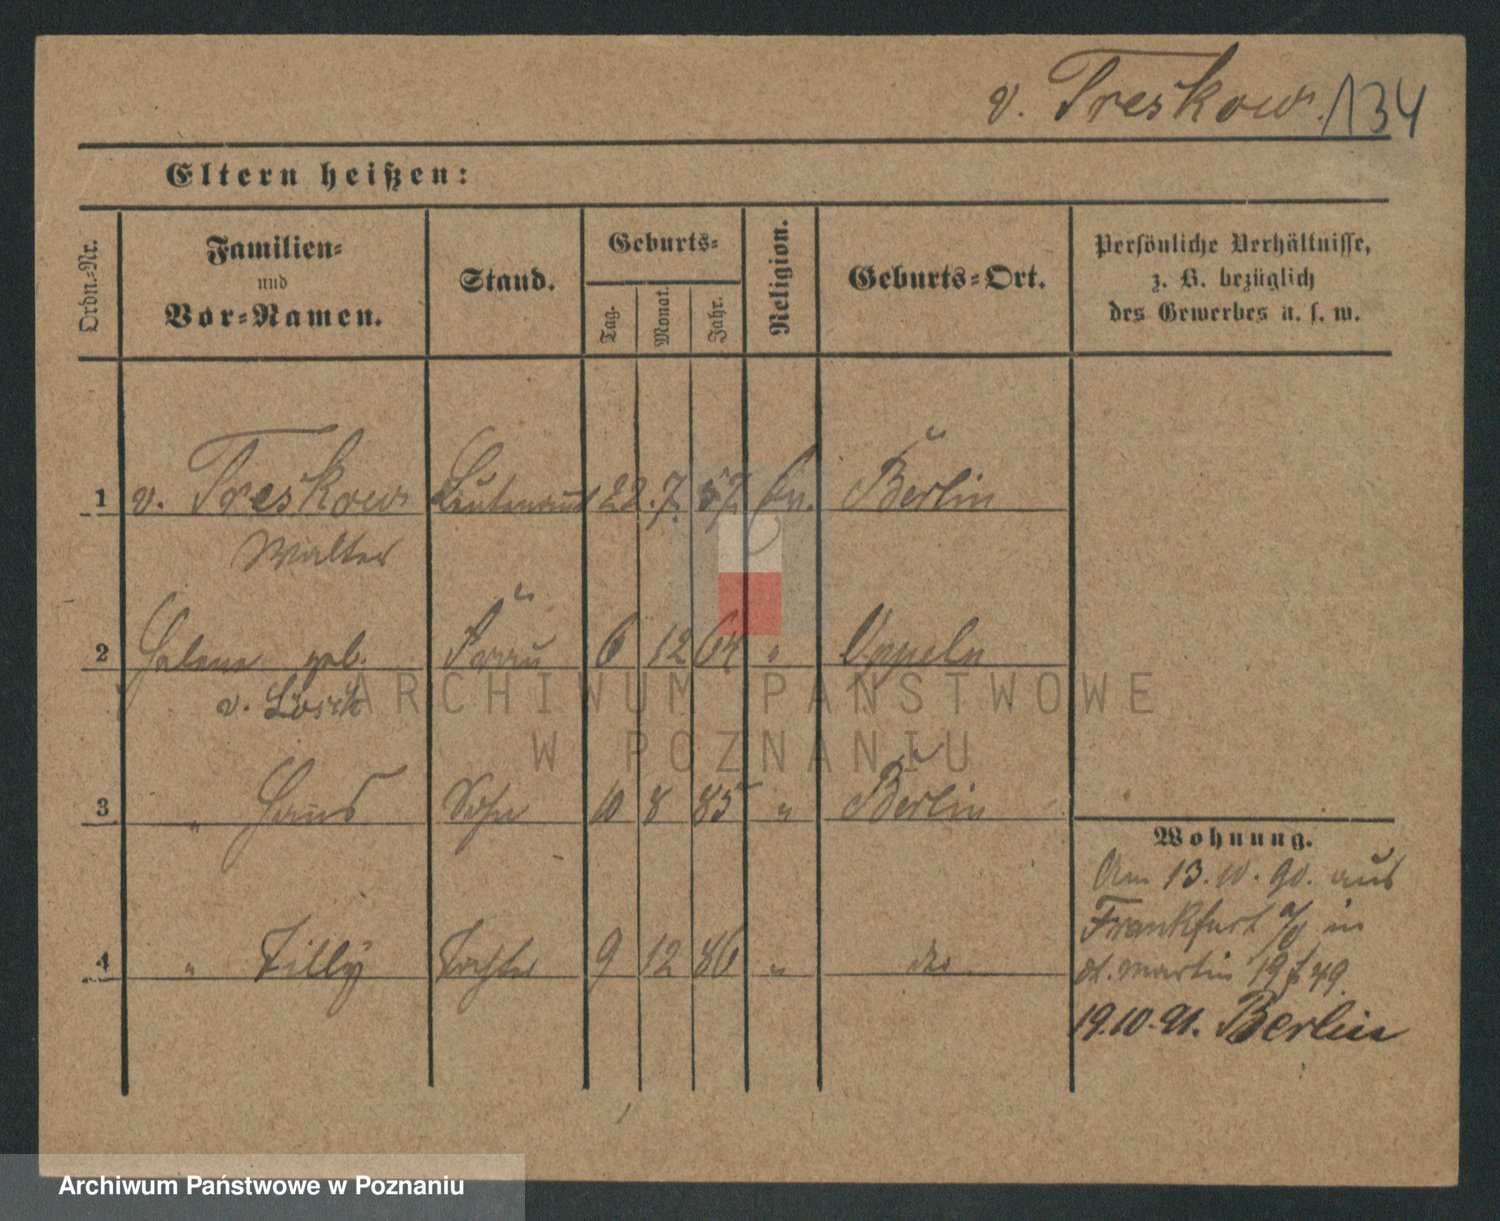 v. Treskow. 134
Eltern heißen:
Ordn.=Nr.
Familien=
und
Vor=Namen.
Stand.
Geburts=
Tag.
Monat.
Jahr.
Religion.
Geburts=Ort.
Persönliche Verhältnisse,
z. B. bezüglich
des Gewerbes u. s. w.
1 v. Treskow Leutenant 22. 7. 57 Ev. Berlin
Walter
2 Helene geb. Frau 6 12 64 " Oppeln
v. Lösch
3 " Hans Sohn 10 8 85 " Berlin
4 " Tilly Tochter 9 12 86 "
Wohnung.
Am 13.10.90. aus
Frankfurt a/O in
St. Martin
19.10.91. Berlin
ARCHIWUM PAŃSTWOWE
W POZNANIU
Archiwum Państwowe w Poznaniu